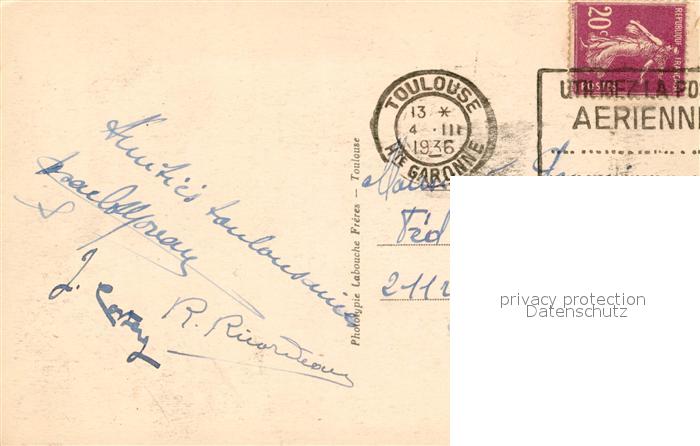 Amitiés toulousaines
J.
R. Ricordeau
Phototypie Labouche Frères — Toulouse
TOULOUSE
13 *
4 · III
1936
HTE GARONNE
20c
REPUBLIQUE FRANÇAISE
POSTES
UTILISEZ LA PO
AERIENNE
Féd
211
privacy protection
Datenschutz